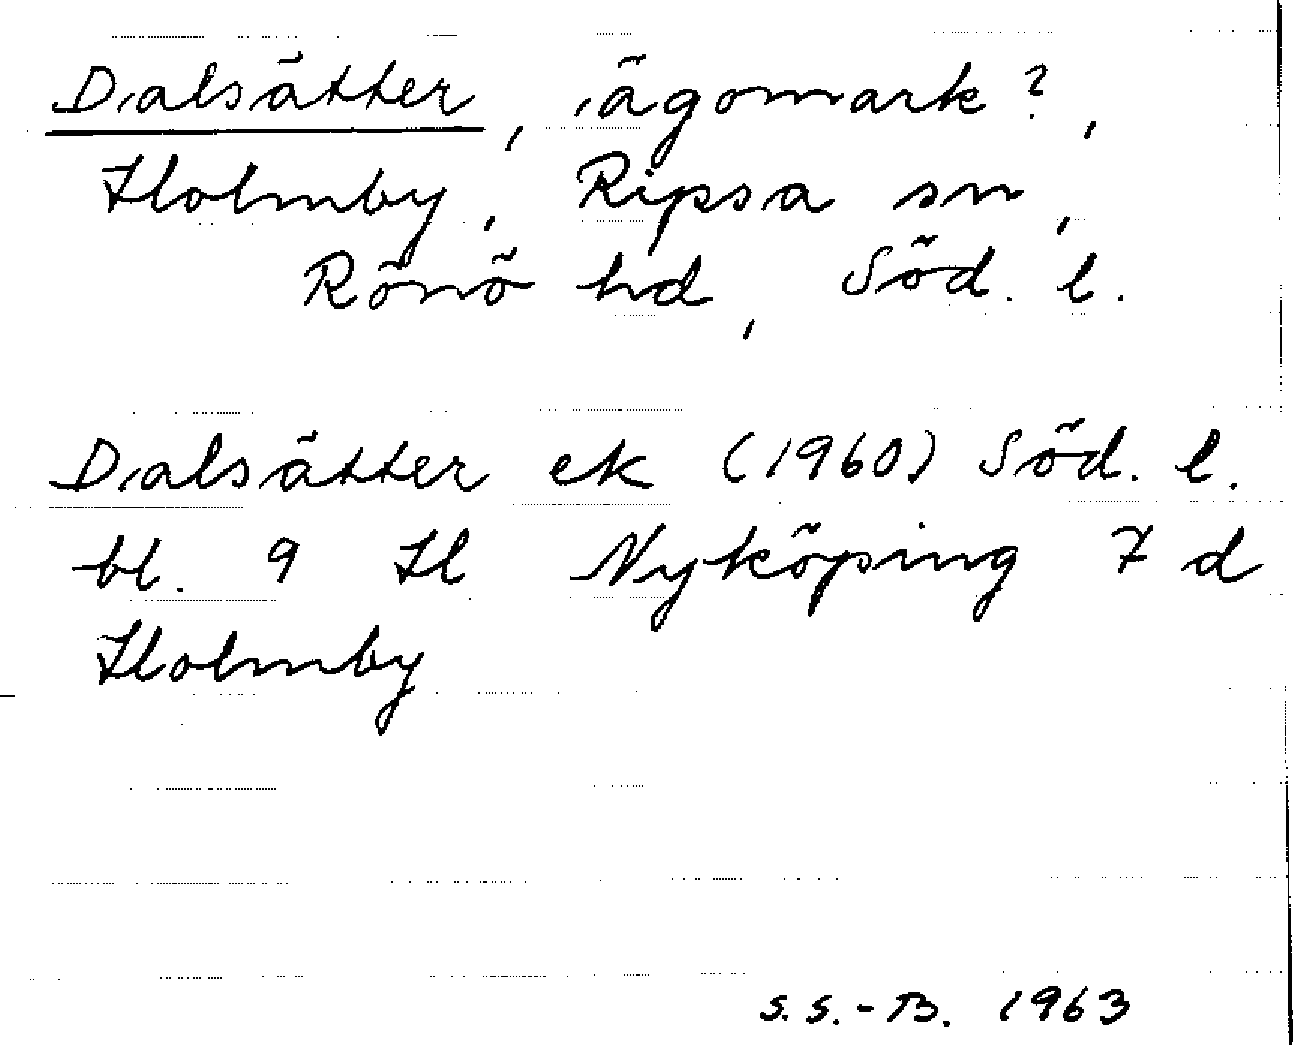 Dalsätter, ägomark?,
Holmby, Ripsa sn,
Rönö hd, Söd. l.
Dalsätter ek (1960) Söd. l.
bl. 9 H Nyköping 7 d
Holmby
S.S.-B. 1963